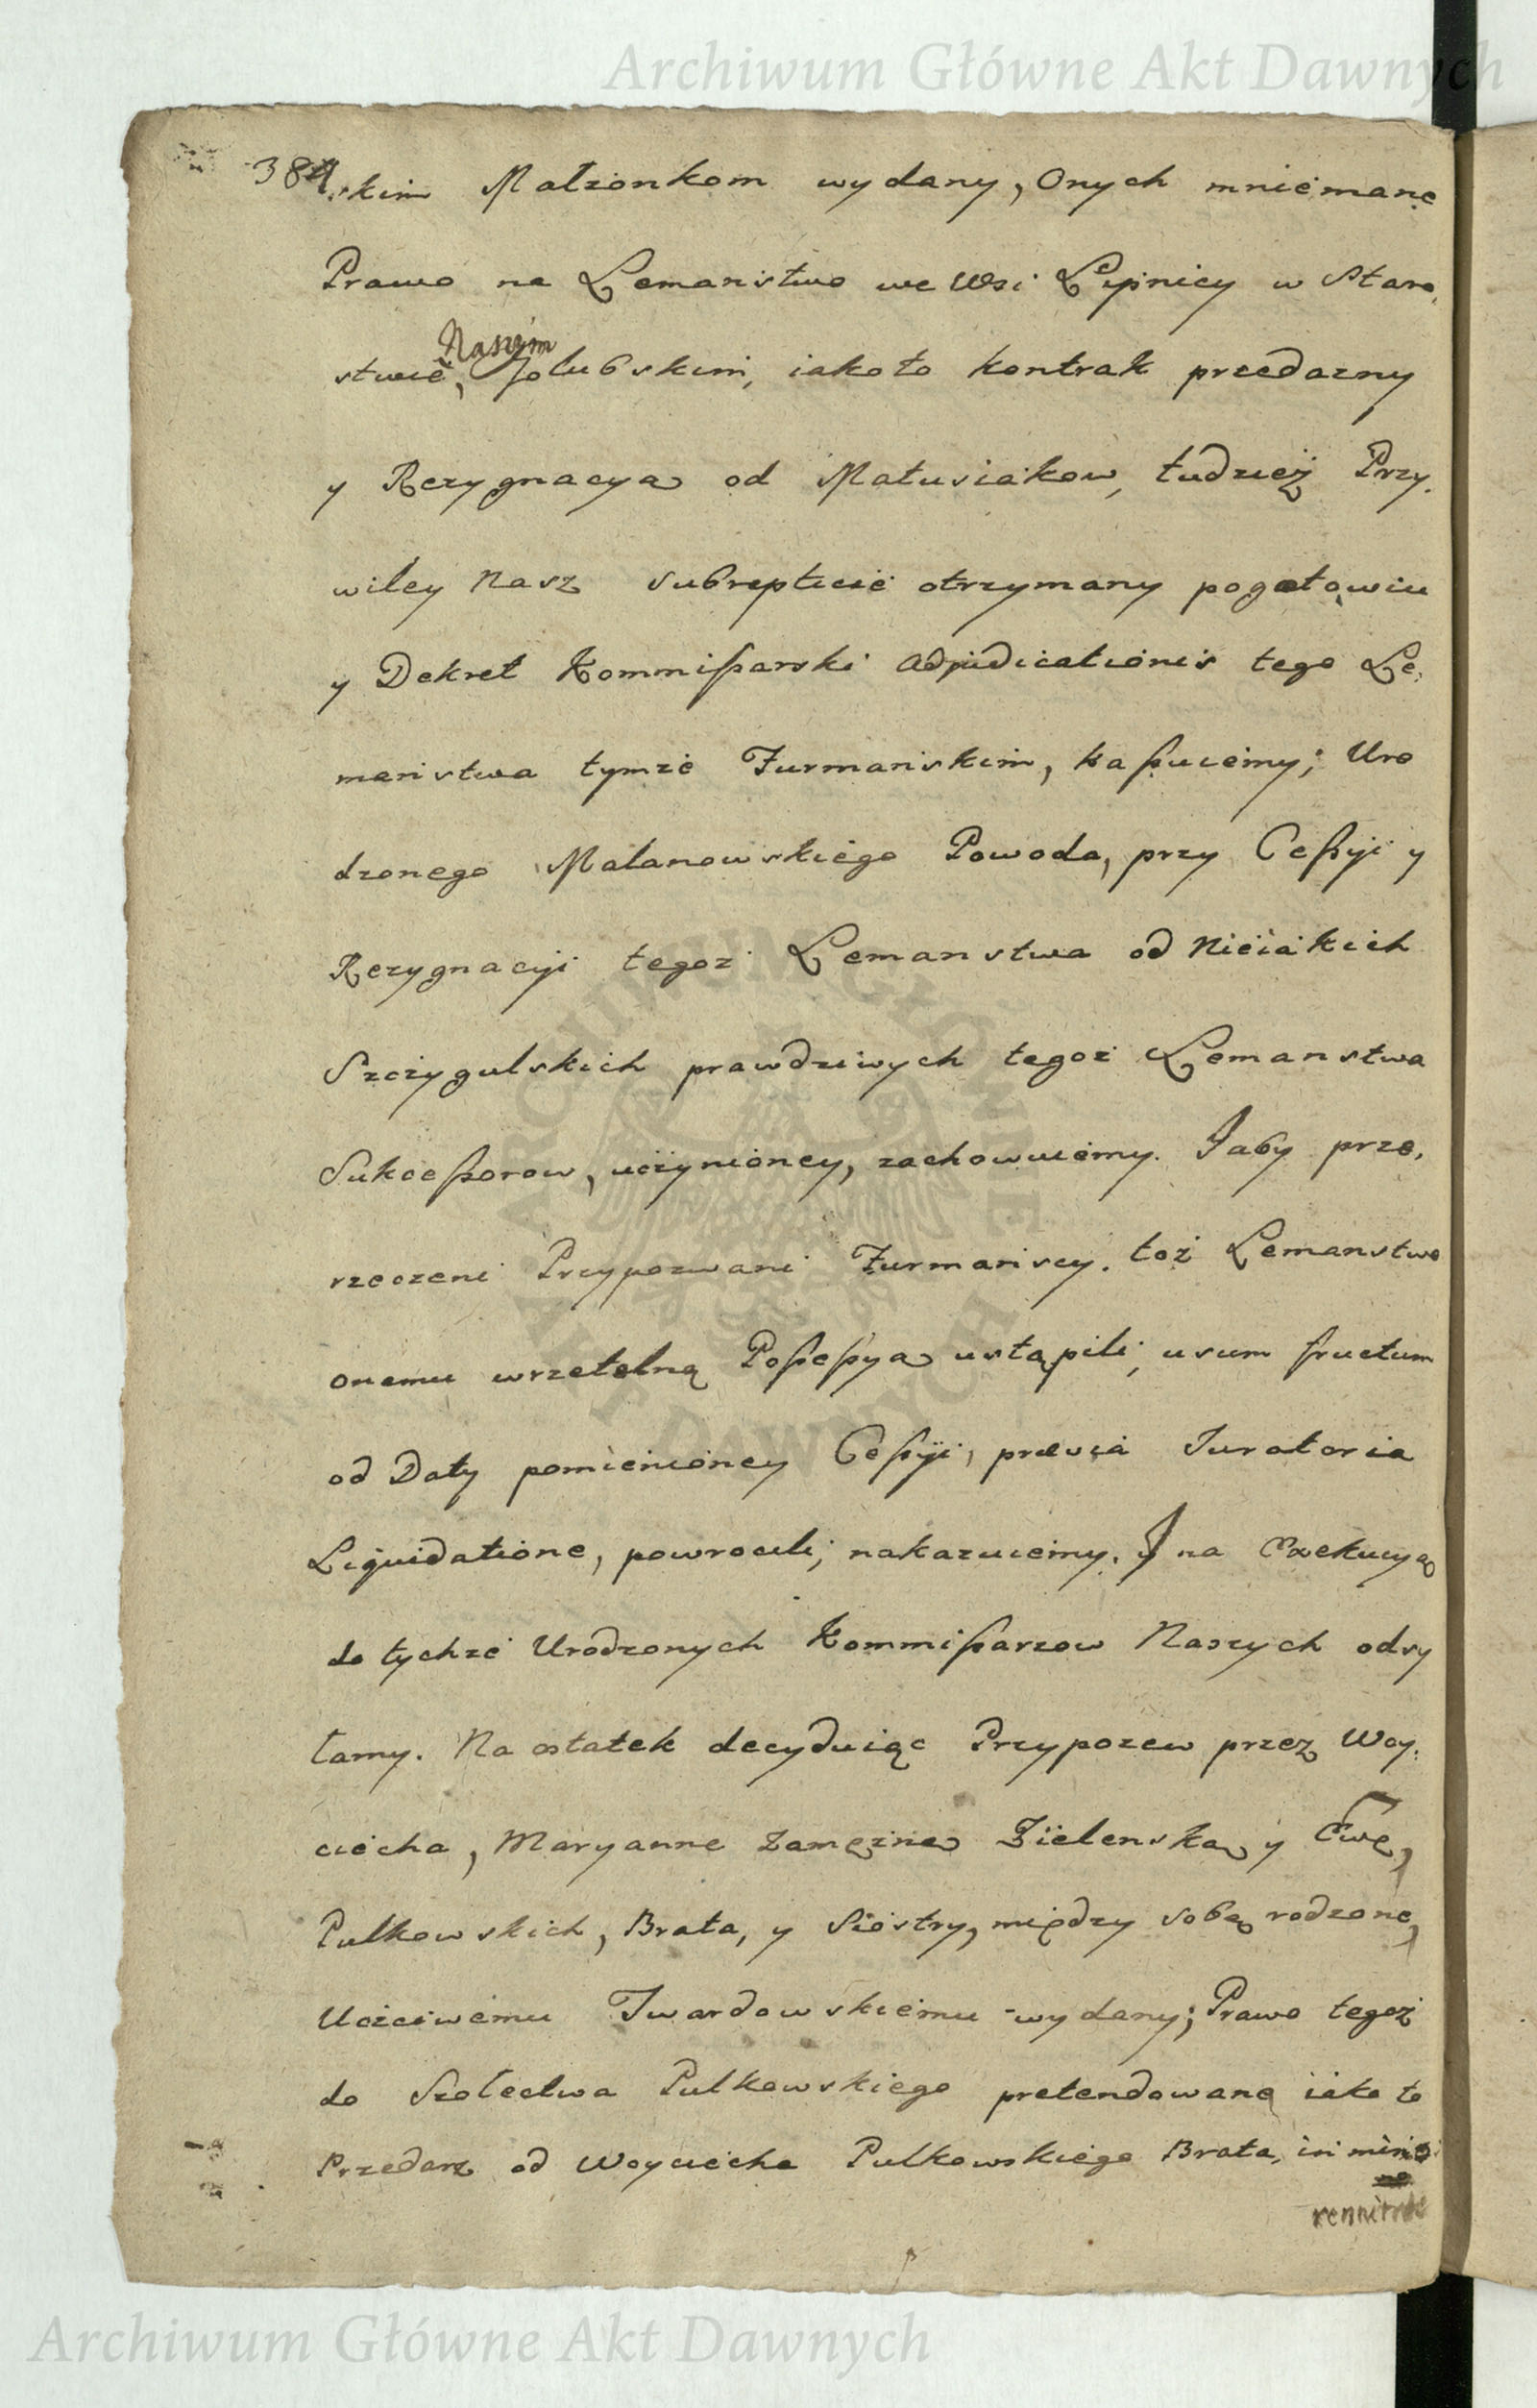 Archiwum Główne Akt Dawnych
384
skim Małżonkom wydany, Onych mniemane
Prawo na Lemanstwo we Wsi Lipnicy w Staro,
Naszym
stwie, Golubskim, iakoto kontrakt przedażny
y Rezygnacya od Matusiakow, tudzież Przy.
wiley Nasz subrepticie otrzymany pogotowiu
y Dekret Kommißarski Adjudicationis tego Le,
manstwa tymże Furmanskim, kaßuiemy; Uro
dzonego Malanowskiego Powoda, przy Ceßyi y
Rezygnacyi tegoż Lemanstwa od Nieiakich
Szczygulskich prawdziwych tegoż Lemanstwa
Sukceßorow, uczynioney, zachowuiemy. Jaby prze,
rzeczeni Przypozwani Furmanscy. toż Lemanstwo
onemu w rzetelną Poßeßyą ustąpili, usum fructum
od Daty pomienioney Ceßyi, prævia Juratoria
Liquidatione, powrocili, nakazuiemy. J na Exekucyą
do tychże Urodzonych Kommißarzow Naszych odsy
łamy. Na ostatek decyduiąc Przypozew przez Woy,
ciecha, Maryannę Zamężną Zielenską y Ewę,
Pulkowskich, Brata, y Siostry, między sobą rodzone,
Uczciwemu Twardowskiemu wydany; Prawo tegoż
do Szołectwa Pulkowskiego pretendowane iako to
Przedaż od Woyciecha Pulkowskiego Brata, in mino
rennitate
ARCHIWUM GŁÓWNE AKT DAWNYCH
Archiwum Główne Akt Dawnych